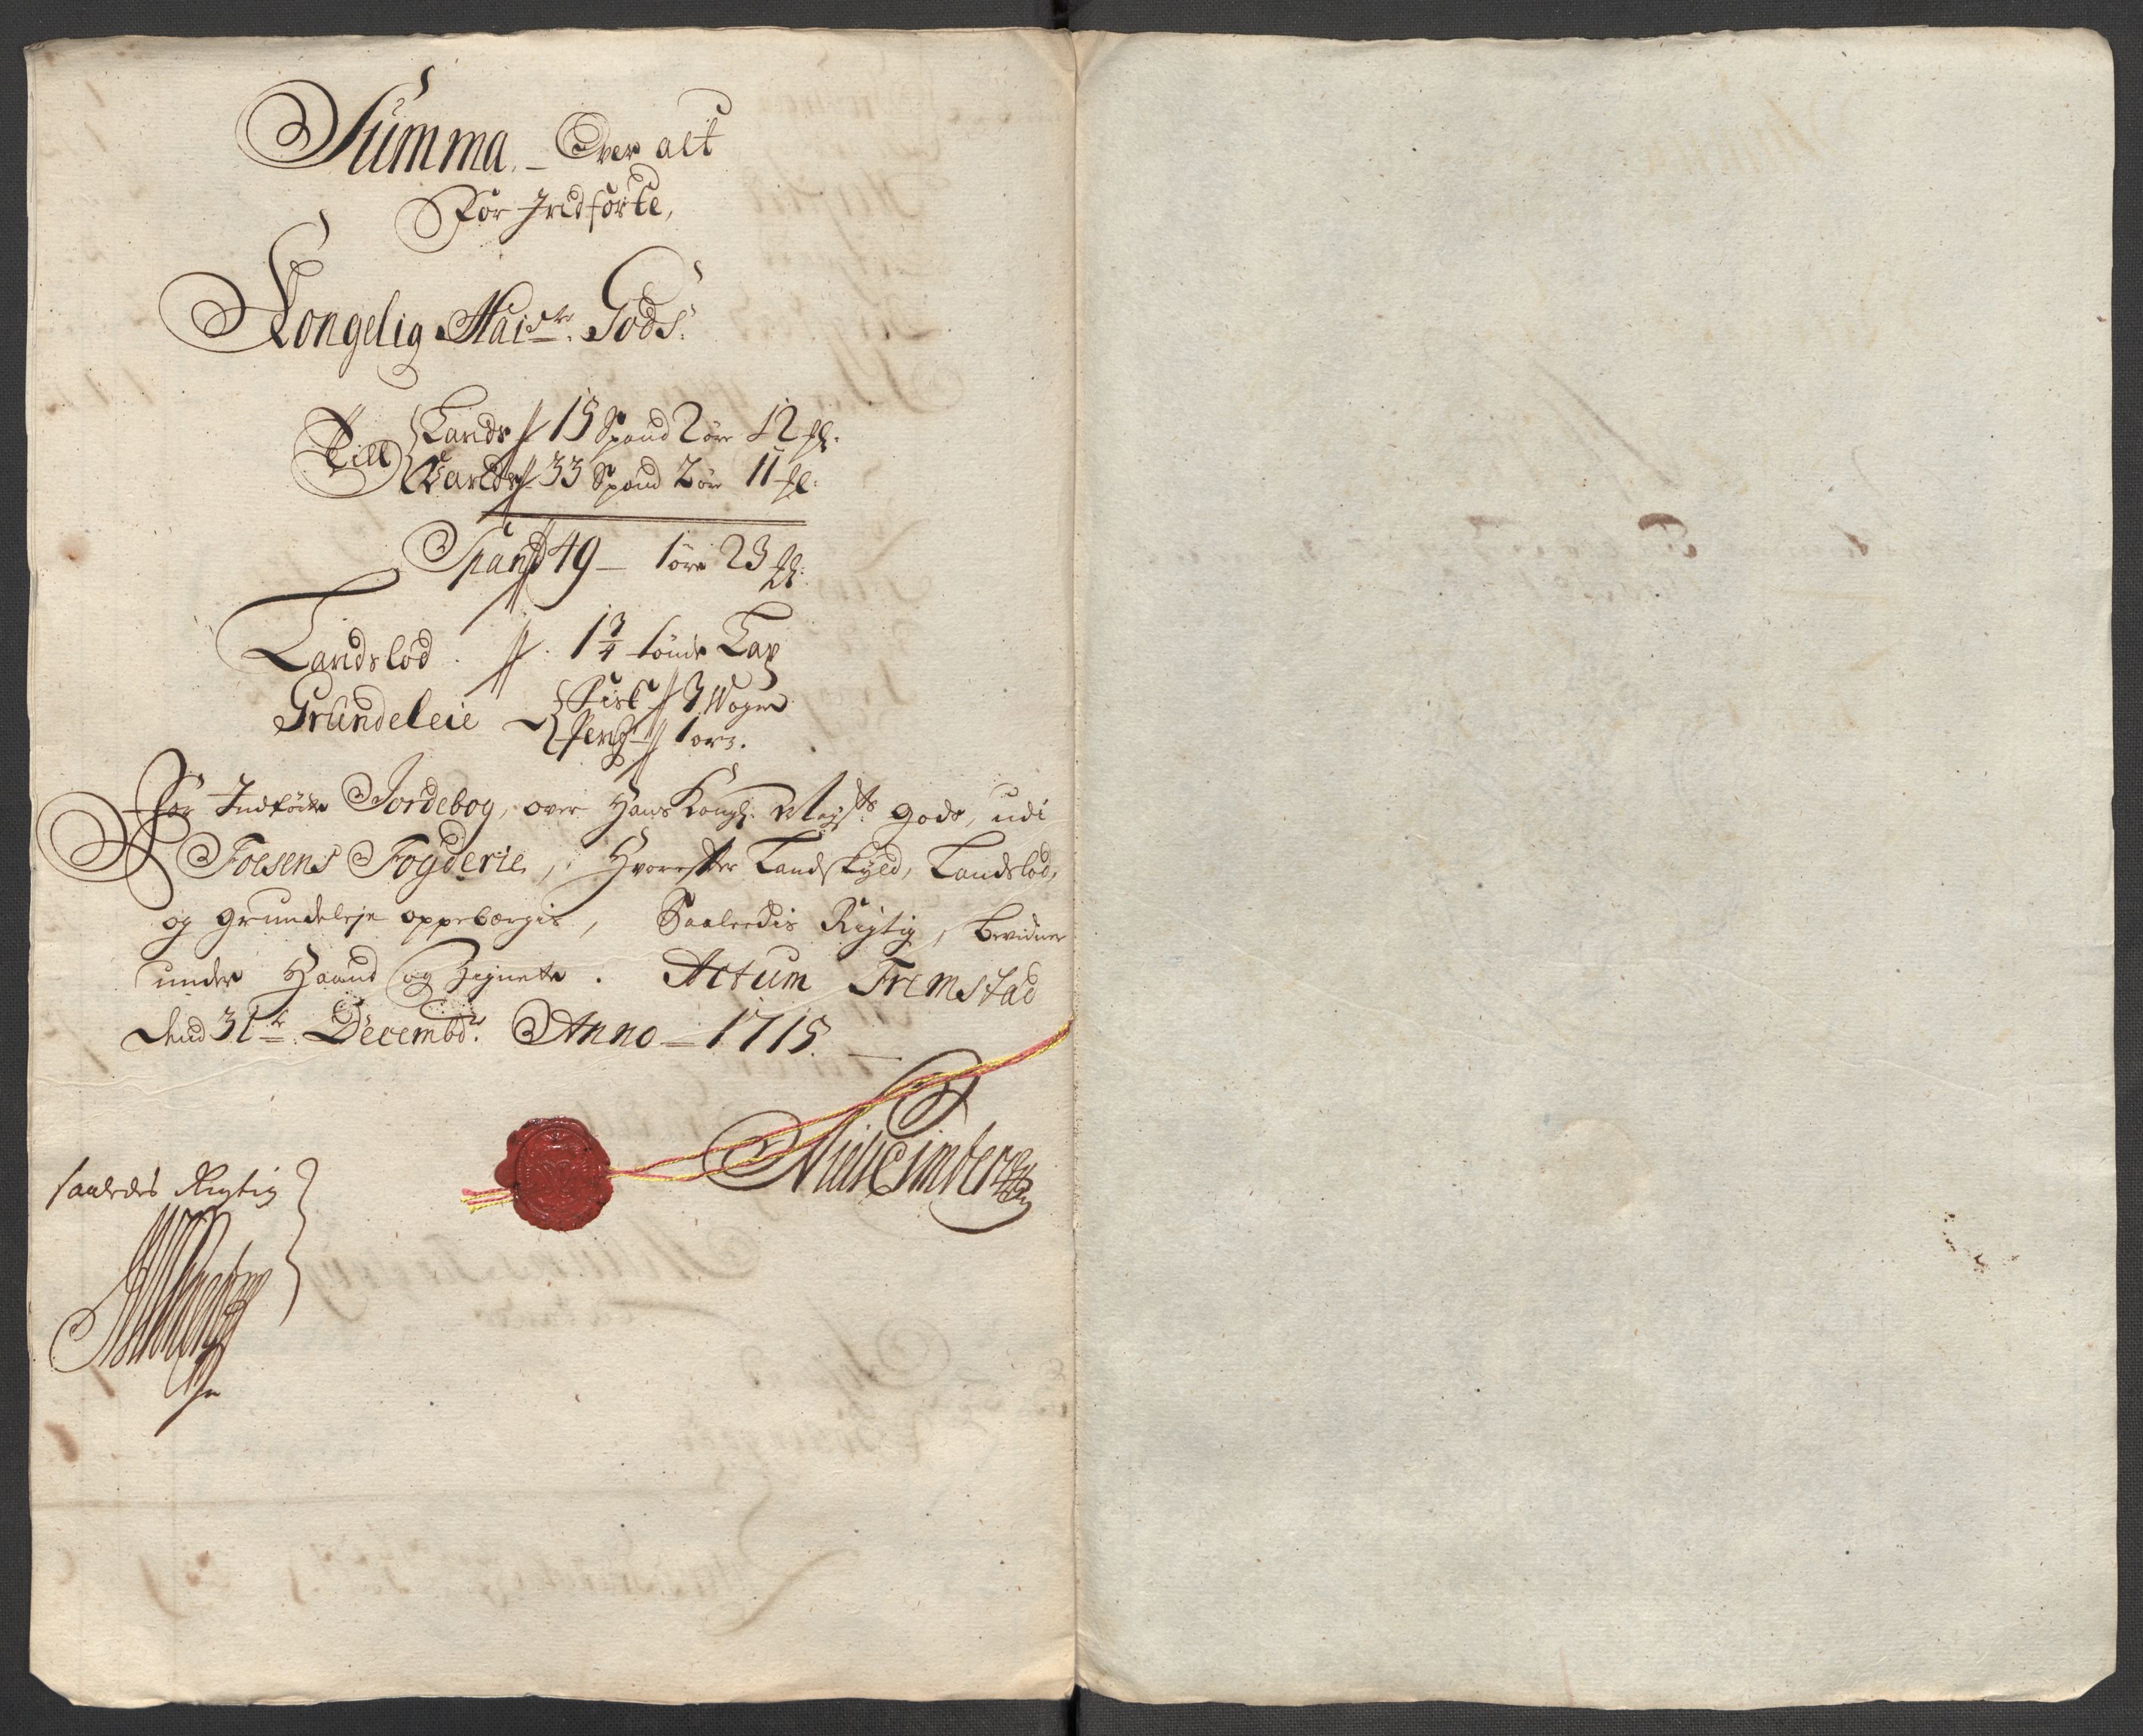 Summa. Over alt
For Indførte,
Kongelig Mai:ts Gods:
Till
Lands // 15 Spand 2 ører 12 sl:
// 33 Spand 2 øre 11 sl:
Spand 49 - 1 øre 23 sl:
Landslod // 1 3/4 tønde Lax
Grundeleie
Fisk // 3 Woger
Peng // 1 ort.
For Indførte Jordebog, over Hans Kongl: Mayts: gods, udi
Fosens Fogderie, Hvorefter Landskyld, Landslod,
og Grundeleje oppebærgis, Saaleedis Rigtig, bevidner
under Haand og Zignete. Actum Fremstad
dend 31te: Decembr: Anno 1715.
saaledes Rigtig